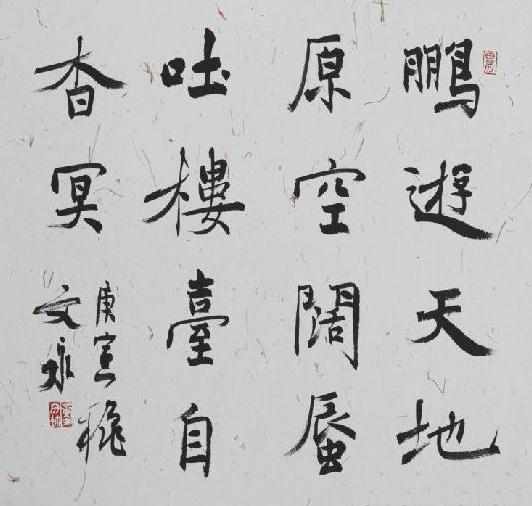 鵬遊天地
原空闊蜃
吐樓臺自
杳冥
庚寅穐
文永